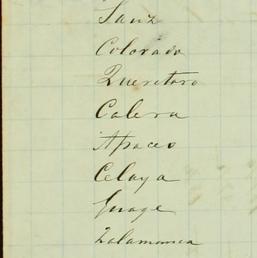 Sauz
Colorado
Queretaro
Calera
Apaceo
Celaya
Guage
Salamanca